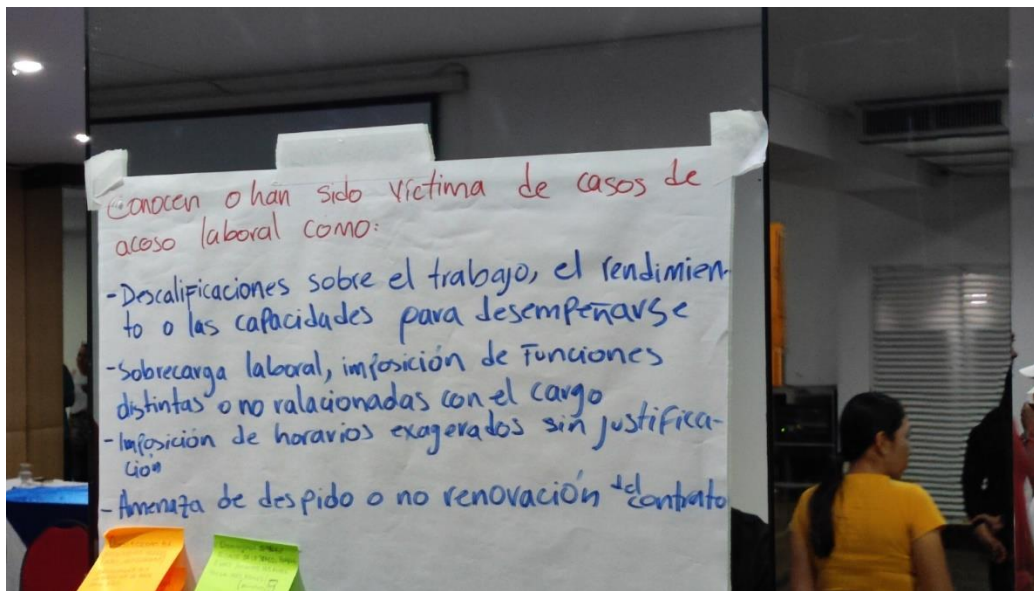 Conocen o han sido víctima de casos de
acoso laboral como:
-Descalificaciones sobre el trabajo, el rendimien-
to o las capacidades para desempeñarse
-Sobrecarga laboral, imposición de Funciones
distintas o no ralacionadas con el cargo
-Imposición de horarios exagerados sin justifica-
ción
-Amenaza de despido o no renovación del contrato